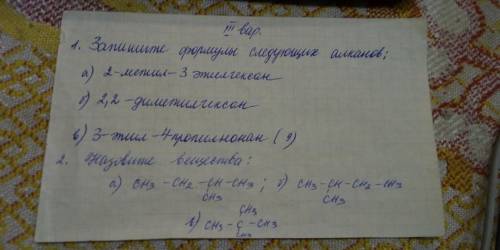 III вар.
1. Запишите формулы следующих алканов;
а) 2-метил-3 этилгексан
б) 2,2-диметилгексан
в) 3-этил-4пропилнонан (9)
2. Назовите вещества:
а) CH3 - CH2 - CH - CH3 ; б) CH3 - CH - CH2 - CH3
CH3 CH3
CH3
в) CH3 - C - CH3
CH3